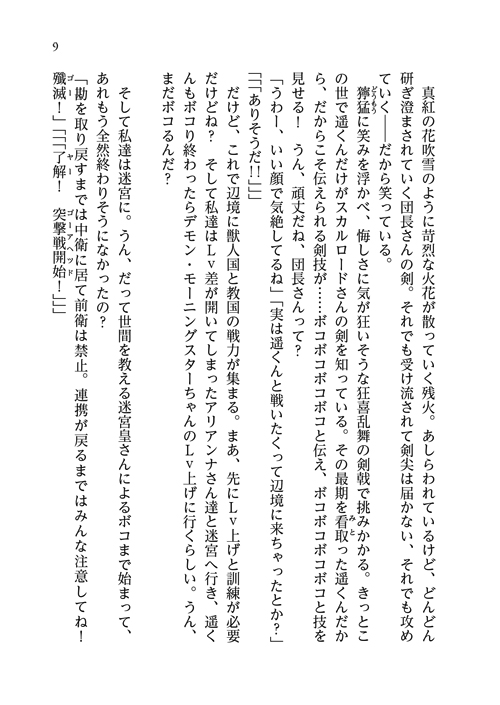 9
　真紅の花吹雪のように苛烈な火花が散っていく残火。あしらわれているけど、どんどん
研ぎ澄まされていく団長さんの剣。それでも受け流されて剣尖は届かない、それでも攻め
ていく――だから笑っている。
　獰猛に笑みを浮かべ、悔しさに気が狂いそうな狂喜乱舞の剣戟で挑みかかる。きっとこ
の世で遥くんだけがスカルロードさんの剣を知っている。その最期を看取った遥くんだか
ら、だからこそ伝えられる剣技が……ボコボコボコボコと伝え、ボコボコボコボコと技を
見せる！　うん、頑丈だね、団長さんって？
「うわー、いい顔で気絶してるね」「実は遥くんと戦いたくって辺境に来ちゃったとか？」
「「「ありそうだ!!」」」
　だけど、これで辺境に獣人国と教国の戦力が集まる。まあ、先にLv上げと訓練が必要
だけどね？　そして私達はLv差が開いてしまったアリアンナさん達と迷宮へ行き、遥く
んもボコり終わったらデモン・モーニングスターちゃんのLv上げに行くらしい。うん、
まだボコるんだ？
　そして私達は迷宮に。うん、だって世間を教える迷宮皇さんによるボコまで始まって、
あれもう全然終わりそうになかったの？
「勘を取り戻すまでは中衛に居て前衛は禁止。連携が戻るまではみんな注意してね！
殲滅！」「「「了解！　突撃戦開始！」」」